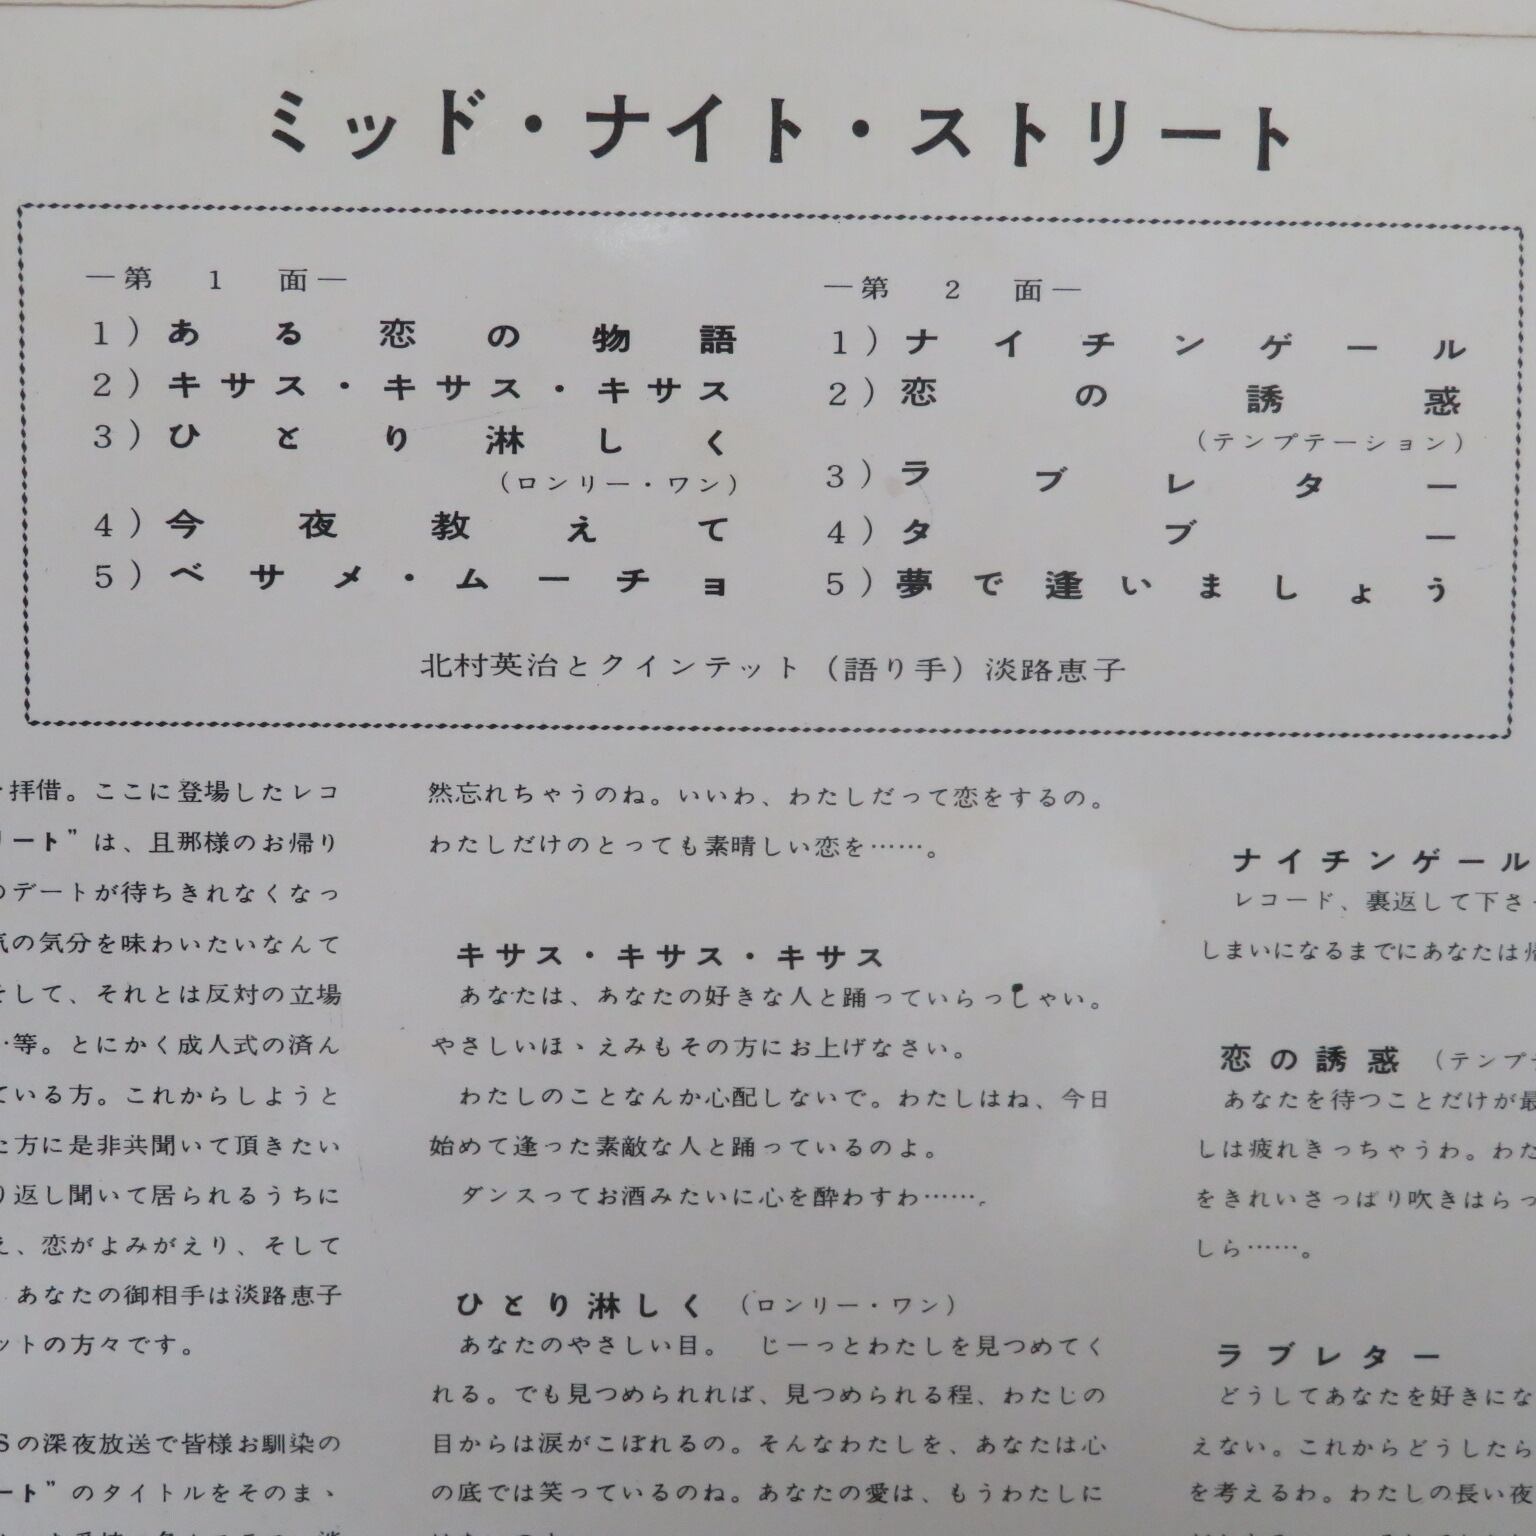 ミッド・ナイト・ストリート
―第 1 面―
1）ある恋の物語
2）キサス・キサス・キサス
3）ひとり淋しく
（ロンリー・ワン）
4）今夜教えて
5）ベサメ・ムーチョ
―第 2 面―
1）ナイチンゲール
2）恋の誘惑
（テンプテーション）
3）ラブレター
4）タブー
5）夢で逢いましょう
北村英治とクインテット（語り手）淡路恵子
拝借。ここに登場したレコ
リート”は、旦那様のお帰り
のデートが待ちきれなくなっ
気の気分を味わいたいなんて
そして、それとは反対の立場
等。とにかく成人式の済ん
ている方。これからしようと
た方に是非共聞いて頂きたい
り返し聞いて居られるうちに
え、恋がよみがえり、そして
あなたの御相手は淡路恵子
ットの方々です。
Sの深夜放送で皆様お馴染の
ート”のタイトルをそのまゝ
然忘れちゃうのね。いいわ、わたしだって恋をするの。
わたしだけのとっても素晴しい恋を……。
キサス・キサス・キサス
あなたは、あなたの好きな人と踊っていらっしゃい。
やさしいほゝえみもその方にお上げなさい。
わたしのことなんか心配しないで。わたしはね、今日
始めて逢った素敵な人と踊っているのよ。
ダンスってお酒みたいに心を酔わすわ……。
ひとり淋しく（ロンリー・ワン）
あなたのやさしい目。　じーっとわたしを見つめてく
れる。でも見つめられれば、見つめられる程、わたじの
目からは涙がこぼれるの。そんなわたしを、あなたは心
の底では笑っているのね。あなたの愛は、もうわたしに
ナイチンゲール
レコード、裏返して下さ
しまいになるまでにあなたは帰
恋の誘惑（テンプテ
あなたを待つことだけが最
しは疲れきっちゃうわ。わた
をきれいさっぱり吹きはらっ
しら……。
ラブレター
どうしてあなたを好きにな
えない。これからどうしたら
を考えるわ。わたしの長い夜